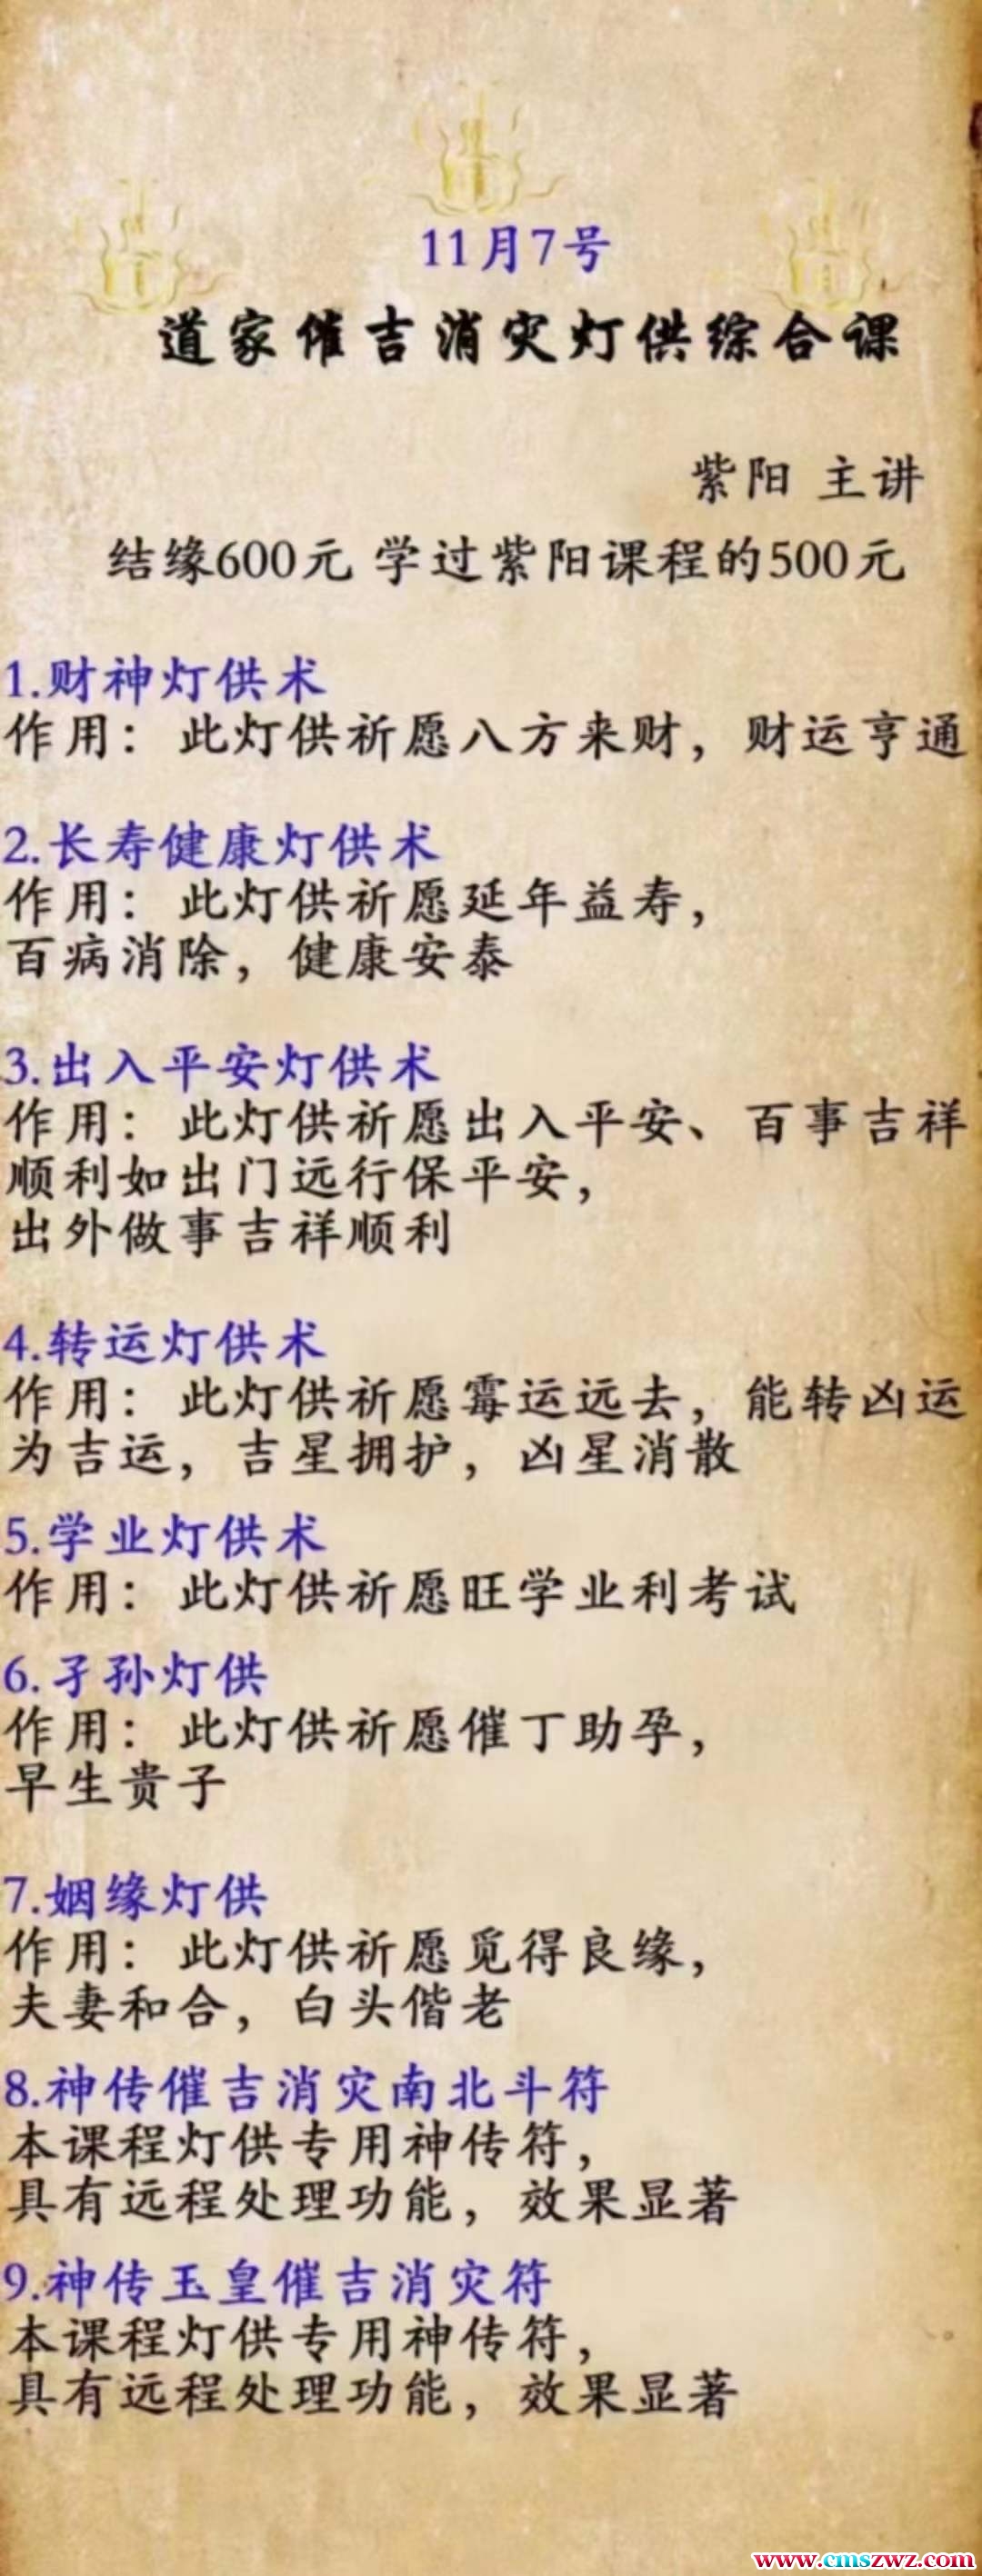 11月7号
道家催吉消灾灯供综合课
紫阳 主讲
结缘600元 学过紫阳课程的500元
1.财神灯供术
作用：此灯供祈愿八方来财，财运亨通
2.长寿健康灯供术
作用：此灯供祈愿延年益寿，
百病消除，健康安泰
3.出入平安灯供术
作用：此灯供祈愿出入平安、百事吉祥
顺利如出门远行保平安，
出外做事吉祥顺利
4.转运灯供术
作用：此灯供祈愿霉运远去，能转凶运
为吉运，吉星拥护，凶星消散
5.学业灯供术
作用：此灯供祈愿旺学业利考试
6.子孙灯供
作用：此灯供祈愿催丁助孕，
早生贵子
7.姻缘灯供
作用：此灯供祈愿觅得良缘，
夫妻和合，白头偕老
8.神传催吉消灾南北斗符
本课程灯供专用神传符，
具有远程处理功能，效果显著
9.神传玉皇催吉消灾符
本课程灯供专用神传符，
具有远程处理功能，效果显著
www.cmszwz.com